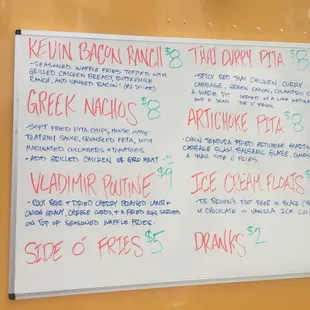 KEVIN BACON RANCH $8
-SEASONED WAFFLE FRIES TOPPED WITH
GRILLED CHICKEN BREAST, BUTTERMILK
RANCH, AND SMOKED BACON! (NO SWINE)
GREEK NACHOS $8
-SOFT FRIED PITA CHIPS, HOUSE MADE
TZATZIKI SAUCE, CRUMBLED FETA, WITH
MARINATED CUCUMBERS + TOMATOES.
- ADD GRILLED CHICKEN OR GYRO MEAT -$2
VLADIMIR POUTINE $9
-ROOT BEER + DRIED CHERRY BRAISED LAMB +
ONION GRAVY, CHEESE CURDS, + A FRIED EGG SERVED
ON TOP OF SEASONED WAFFLE FRIES.
SIDE O' FRIES $5
THAI CURRY PITA $8
-SPICY RED THAI CHICKEN CURRY
CABBAGE, GREEN ONION, CILANTRO
A WARM PITA SERVED W/ A LIME
AND A SMALL SIDE O' FRIES.
ARTICHOKE PITA $8
TEMPURA FRIED ARTICHOKE HEARTS
CABBAGE SLAW, BALSAMIC GLAZE,
A SMALL SIDE O' FRIES.
ICE CREAM FLOATS $
-DR. BROWN'S ROOT BEER OR BLACK
W/ CHOCOLATE OR VANILLA ICE
DRANKS $2